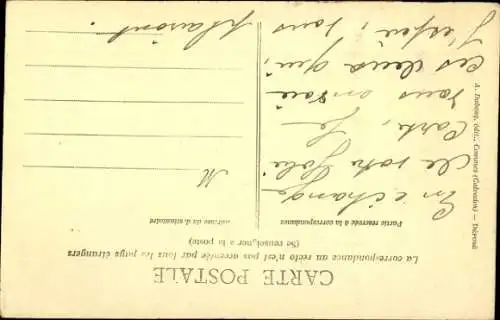 CARTE POSTALE
La correspondance au recto n'est pas acceptée par tous les pays étrangers
(Se renseigner à la poste)
Partie réservée à la correspondance
Adresse du destinataire
En échange
de votre jolie
Carte, je
vous envoie
ces deux qui,
j'espère, vous
plairont.
M
A. Dubosq, édit., Commes (Calvados) — Déposé